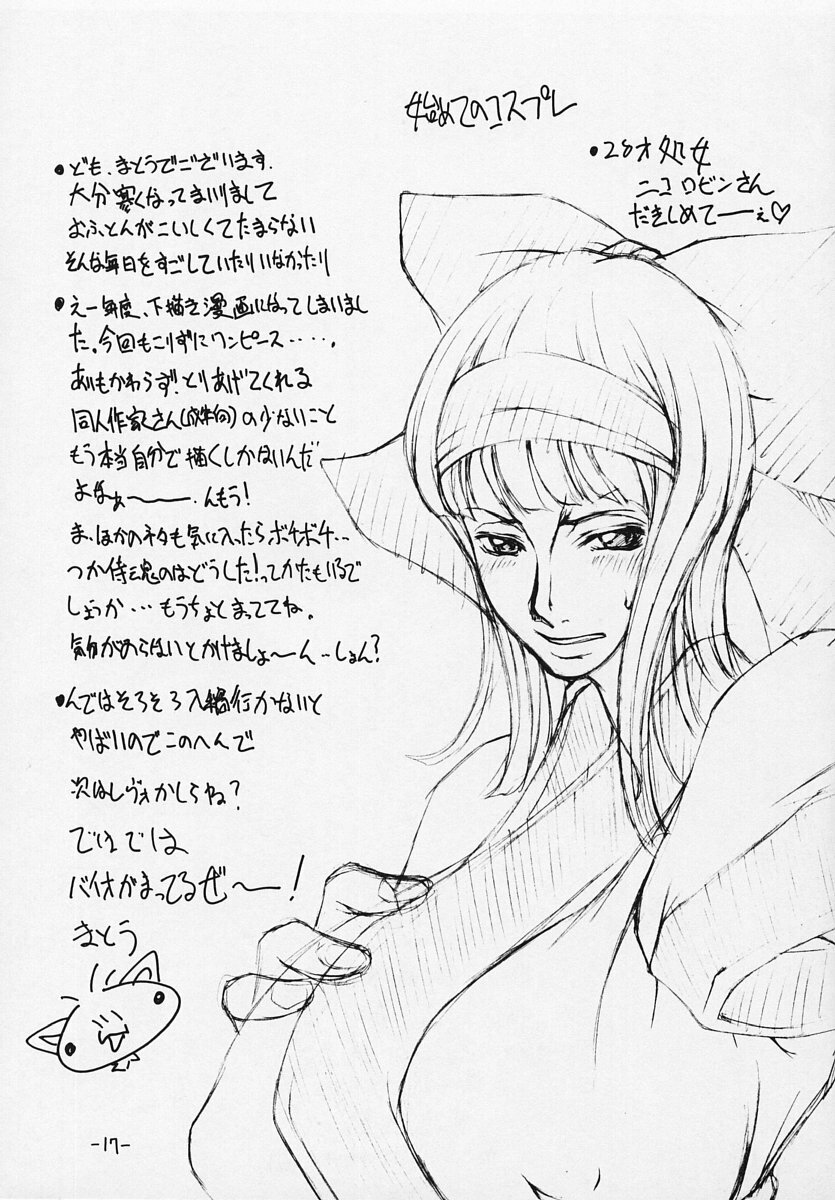 始めてのコスプレ
•28才処女
ニコロビンさん
だきしめてーぇ♡
•ども、まとうでございます。
大分寒くなってまいりまして
おふとんがこいしくてたまらない
そんな毎日をすごしていたりいなかったり
•えー毎度、下描き漫画になってしまいまし
た。今回もこりずにワンピース・・・・・。
あいもかわらず!とりあげてくれる
同人作家さん(成年向)の少ないこと
もう本当自分で描くしかないんだ
よなぁ〜〜。んもう!
ま、ほかのネタも気に入ったらボチボチ・・
つか侍魂のはどうした!ってかたもいるで
しょうか・・・もうちょとまっててね。
気分がのらないとかけましょ〜ん・・しょん?
•んではそろそろ入稿行かないと
やばいのでこのへんで
次はレヴォかしらね?
でわでは
バイオがまってるぜ〜!
まとう
-17-